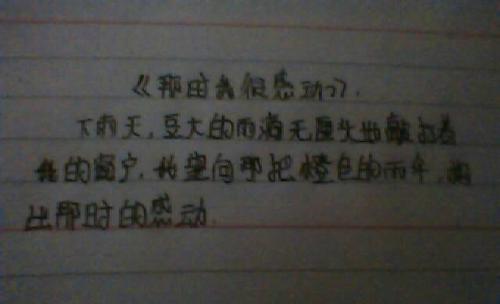 《那时我很感动》.
下雨天,豆大的雨滴无厘头地敲打着
我的窗户,我望向那把橙色的雨伞,
出那时的感动.